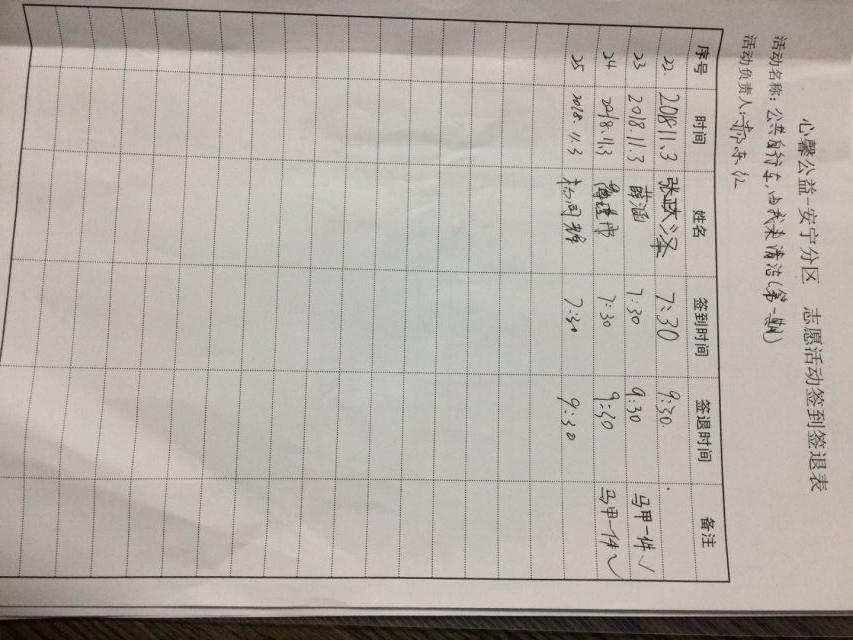 心馨公益-安宁分区 志愿活动签到签退表
活动名称:公共自行车,由我来清洁(第一期)
活动负责人:
序号 时间 姓名 签到时间 签退时间 备注
22. 2018.11.3 张跃泽 7:30 9:30.
23 2018.11.3 薛涵 7:30 9:30 马甲一件✓
24 2018.11.3 7:30 9:30 马甲一件✓
25 2018.11.3 7:30 9:30